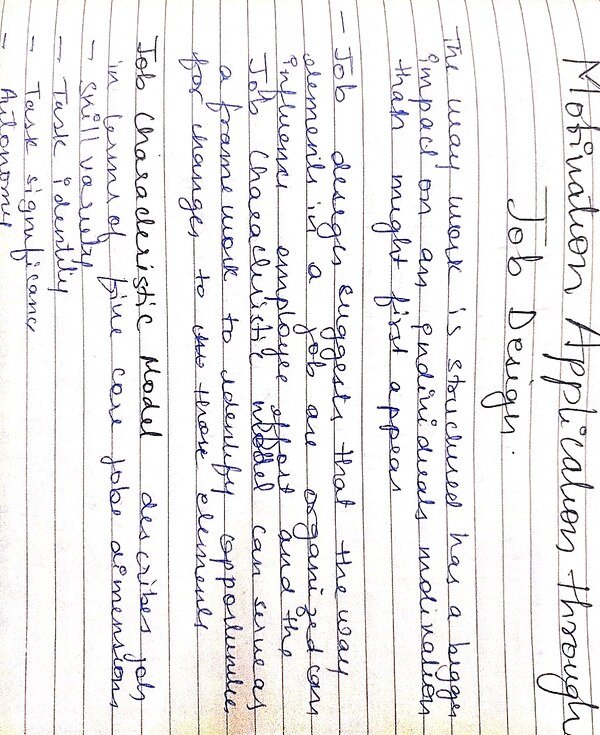 Motivation Application through
Job Design.
The way work is structured has a bigger
impact on an individuals motivation
than might first appear
- Job design suggests that the way
elements in a job are organized can
influence employee effort and the
Job Characteristic model can serve as
a framework to identify opportunities
for changes to those elements
Job Characteristic Model describes job
in terms of five core jobs dimensions
- Skill variety
- Task identity
- Task significance
- Autonomy
-